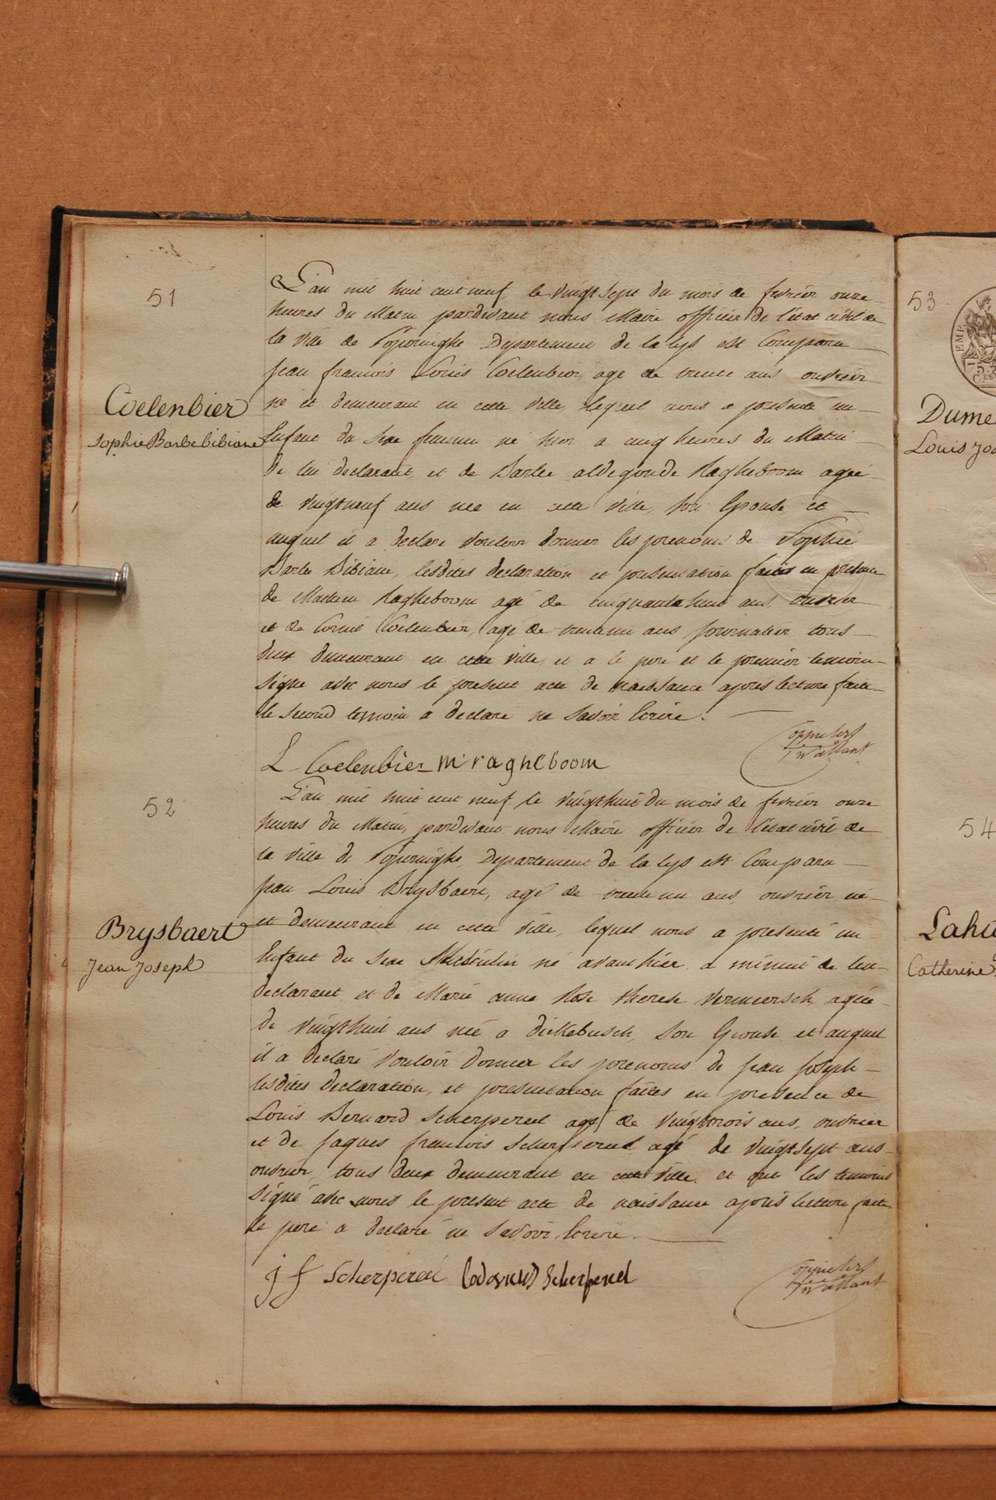 51
Coelenbier
Sophie Barbe bibiane
L'an mil huit cent neuf le vingt sept du mois de fevrier onze
heures du Matin pardevant nous Maire officier de l'etat civil de
la ville de Poperinghe Departement de la Lys est Comparu
jean francois Louis Coelenbier age de trente ans ouvrier
ne et demeurant en cette ville, lequel nous a presenté un
Enfant du Sexe feminin ne hier a cinq heures du Matin
de lui declarant et de Barbe aldegonde Ragheboom agée
de vingt neuf ans nee en cette ville, son Epouse et
auquel il a declare vouloir donner les prenoms de Sophie
Barbe Bibiane, lesdites declaration et presentation faites en presence
de Mathieu Ragheboom agé de cinquante huit ans ouvrier
et de Louis Coelenbier, agé de trente un ans journalier tous
deux demeurant en cette ville, et a le pere et le premier temoin
signe avec nous le present acte de naissance apres lecture faite
le second temoin a declare ne savoir Ecrire.
L Coelenbier m ragheboom
52
Brysbaert
Jean Joseph
L'an mil huit cent neuf le vingt huit du mois de fevrier onze
heures du Matin, pardevant nous Maire officier de l'etat civil de
la ville de Poperinghe Departement de la Lys est Comparu
jean Louis Brysbaert, agé de trente un ans ouvrier né
et demeurant en cette ville, lequel nous a presenté un
Enfant du Sexe Masculin né avant hier a minuit de lui
declarant et de Marie anne Rose therese Vermeersch agée
de vingt huit ans née a dickebusch, son Epouse et auquel
il a declaré vouloir donner les prenoms de jean joseph
lesdites declaration, et presentation faites en presence de
Louis Bernard Scherpereel agé de vingt trois ans, ouvrier
et de jaques francois Scherpereel agé de vingt sept ans
ouvrier, tous deux demeurant en cette ville, et ont les temoins
signé avec nous le present acte de naissance apres lecture faite
le pere a declaré ne savoir Ecrire.
j f Scherpereel Lodovicus Scherpereel
53
Dume
Louis Jos
54
Lahu
Catherine